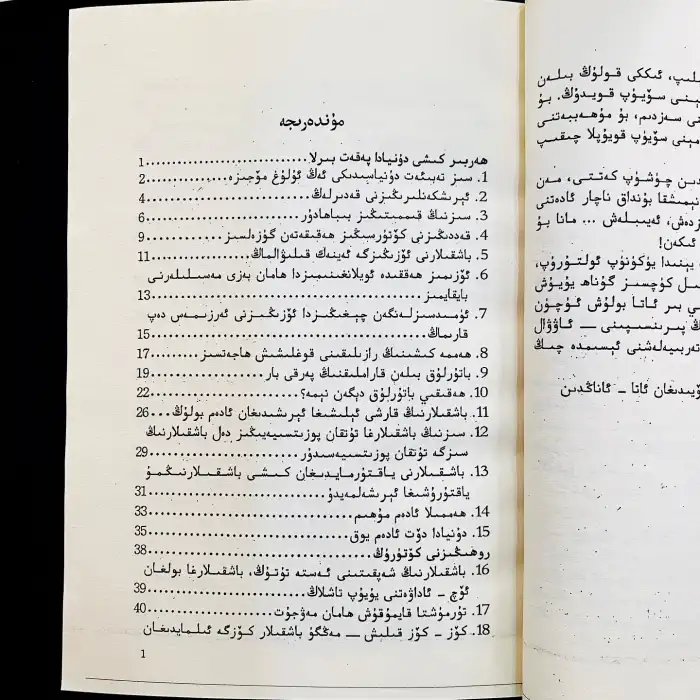 مۇندەرىجە
ھەربىر كىشى دۇنيادا پەقەت بىرلا......................1
1. سىز تەبىئەت دۇنياسىدىكى ئەڭ ئۇلۇغ مۆجىزە..........2
2. ئېرىشكەنلىرىڭىزنى قەدىرلەڭ......................4
3. سىزنىڭ قىممىتىڭىز بىباھادۇر......................6
4. قەددىڭىزنى كۆتۈرسىڭىز ھەقىقەتەن گۈزەلسىز..........9
5. باشقىلارنى ئۆزىڭىزگە ئەينەك قىلىۋالماڭ..........11
6. ئۆزىمىز ھەققىدە ئويلانغىنىمىزدا ھامان بەزى مەسىلىلەرنى
بايقايمىز......................13
7. ئۈمىدسىزلەنگەن چېغىڭىزدا ئۆزىڭىزنى ئەرزىمەس دەپ
قارىماڭ......................15
8. ھەممە كىشىنىڭ رازىلىقىنى قوغلىشىش ھاجەتسىز......17
9. باتۇرلۇق بىلەن قاراملىقنىڭ پەرقى بار..........19
10. ھەقىقىي باتۇرلۇق دېگەن نېمە؟..............22
11. باشقىلارنىڭ قارشى ئېلىشىغا ئېرىشىدىغان ئادەم بولۇڭ...26
12. سىزنىڭ باشقىلارغا تۇتقان پوزىتسىيەيىڭىز دەل باشقىلارنىڭ
سىزگە تۇتقان پوزىتسىيەسىدۇر......................29
13. باشقىلارنى ياقتۇرمايدىغان كىشى باشقىلارنىڭمۇ
ياقتۇرۇشىغا ئېرىشەلمەيدۇ......................31
14. ھەممىلا ئادەم مۇھىم......................33
15. دۇنيادا دۆت ئادەم يوق......................35
روھىڭىزنى كۆتۈرۈڭ......................38
16. باشقىلارنىڭ شەپقىتىنى ئەستە تۇتۇڭ، باشقىلارغا بولغان
ئۆچ - ئاداۋەتنى يۇيۇپ تاشلاڭ......................39
17. تۇرمۇشتا قايمۇقۇش ھامان مەۋجۇت..............40
18. كۆز - كۆز قىلىش — مەڭگۈ باشقىلار كۆزگە ئىلمايدىغان
1
ئىككى قولۇڭ بىلەن
سۆيۈپ قويدۇڭ. بۇ
سەزدىم، بۇ مۇھەببەتنى
سۆيۈپ قويۇپلا چىقىپ
چۈشۈپ كەتتى، مەن
بۇنداق ناچار ئادەتنى
ئەيىبلەش ... مانا بۇ
ئىكەن!
يېنىدا يۈكۈنۈپ ئولتۇرۇپ،
كۈچسىز گۇناھ يۇيۇش
بىر ئاتا بولۇش ئۈچۈن
پىرىنسىپىنى — ئاۋۋال
تەربىيەلەشنى ئېسىمدە چىڭ
ئاتا - ئاناڭدىن